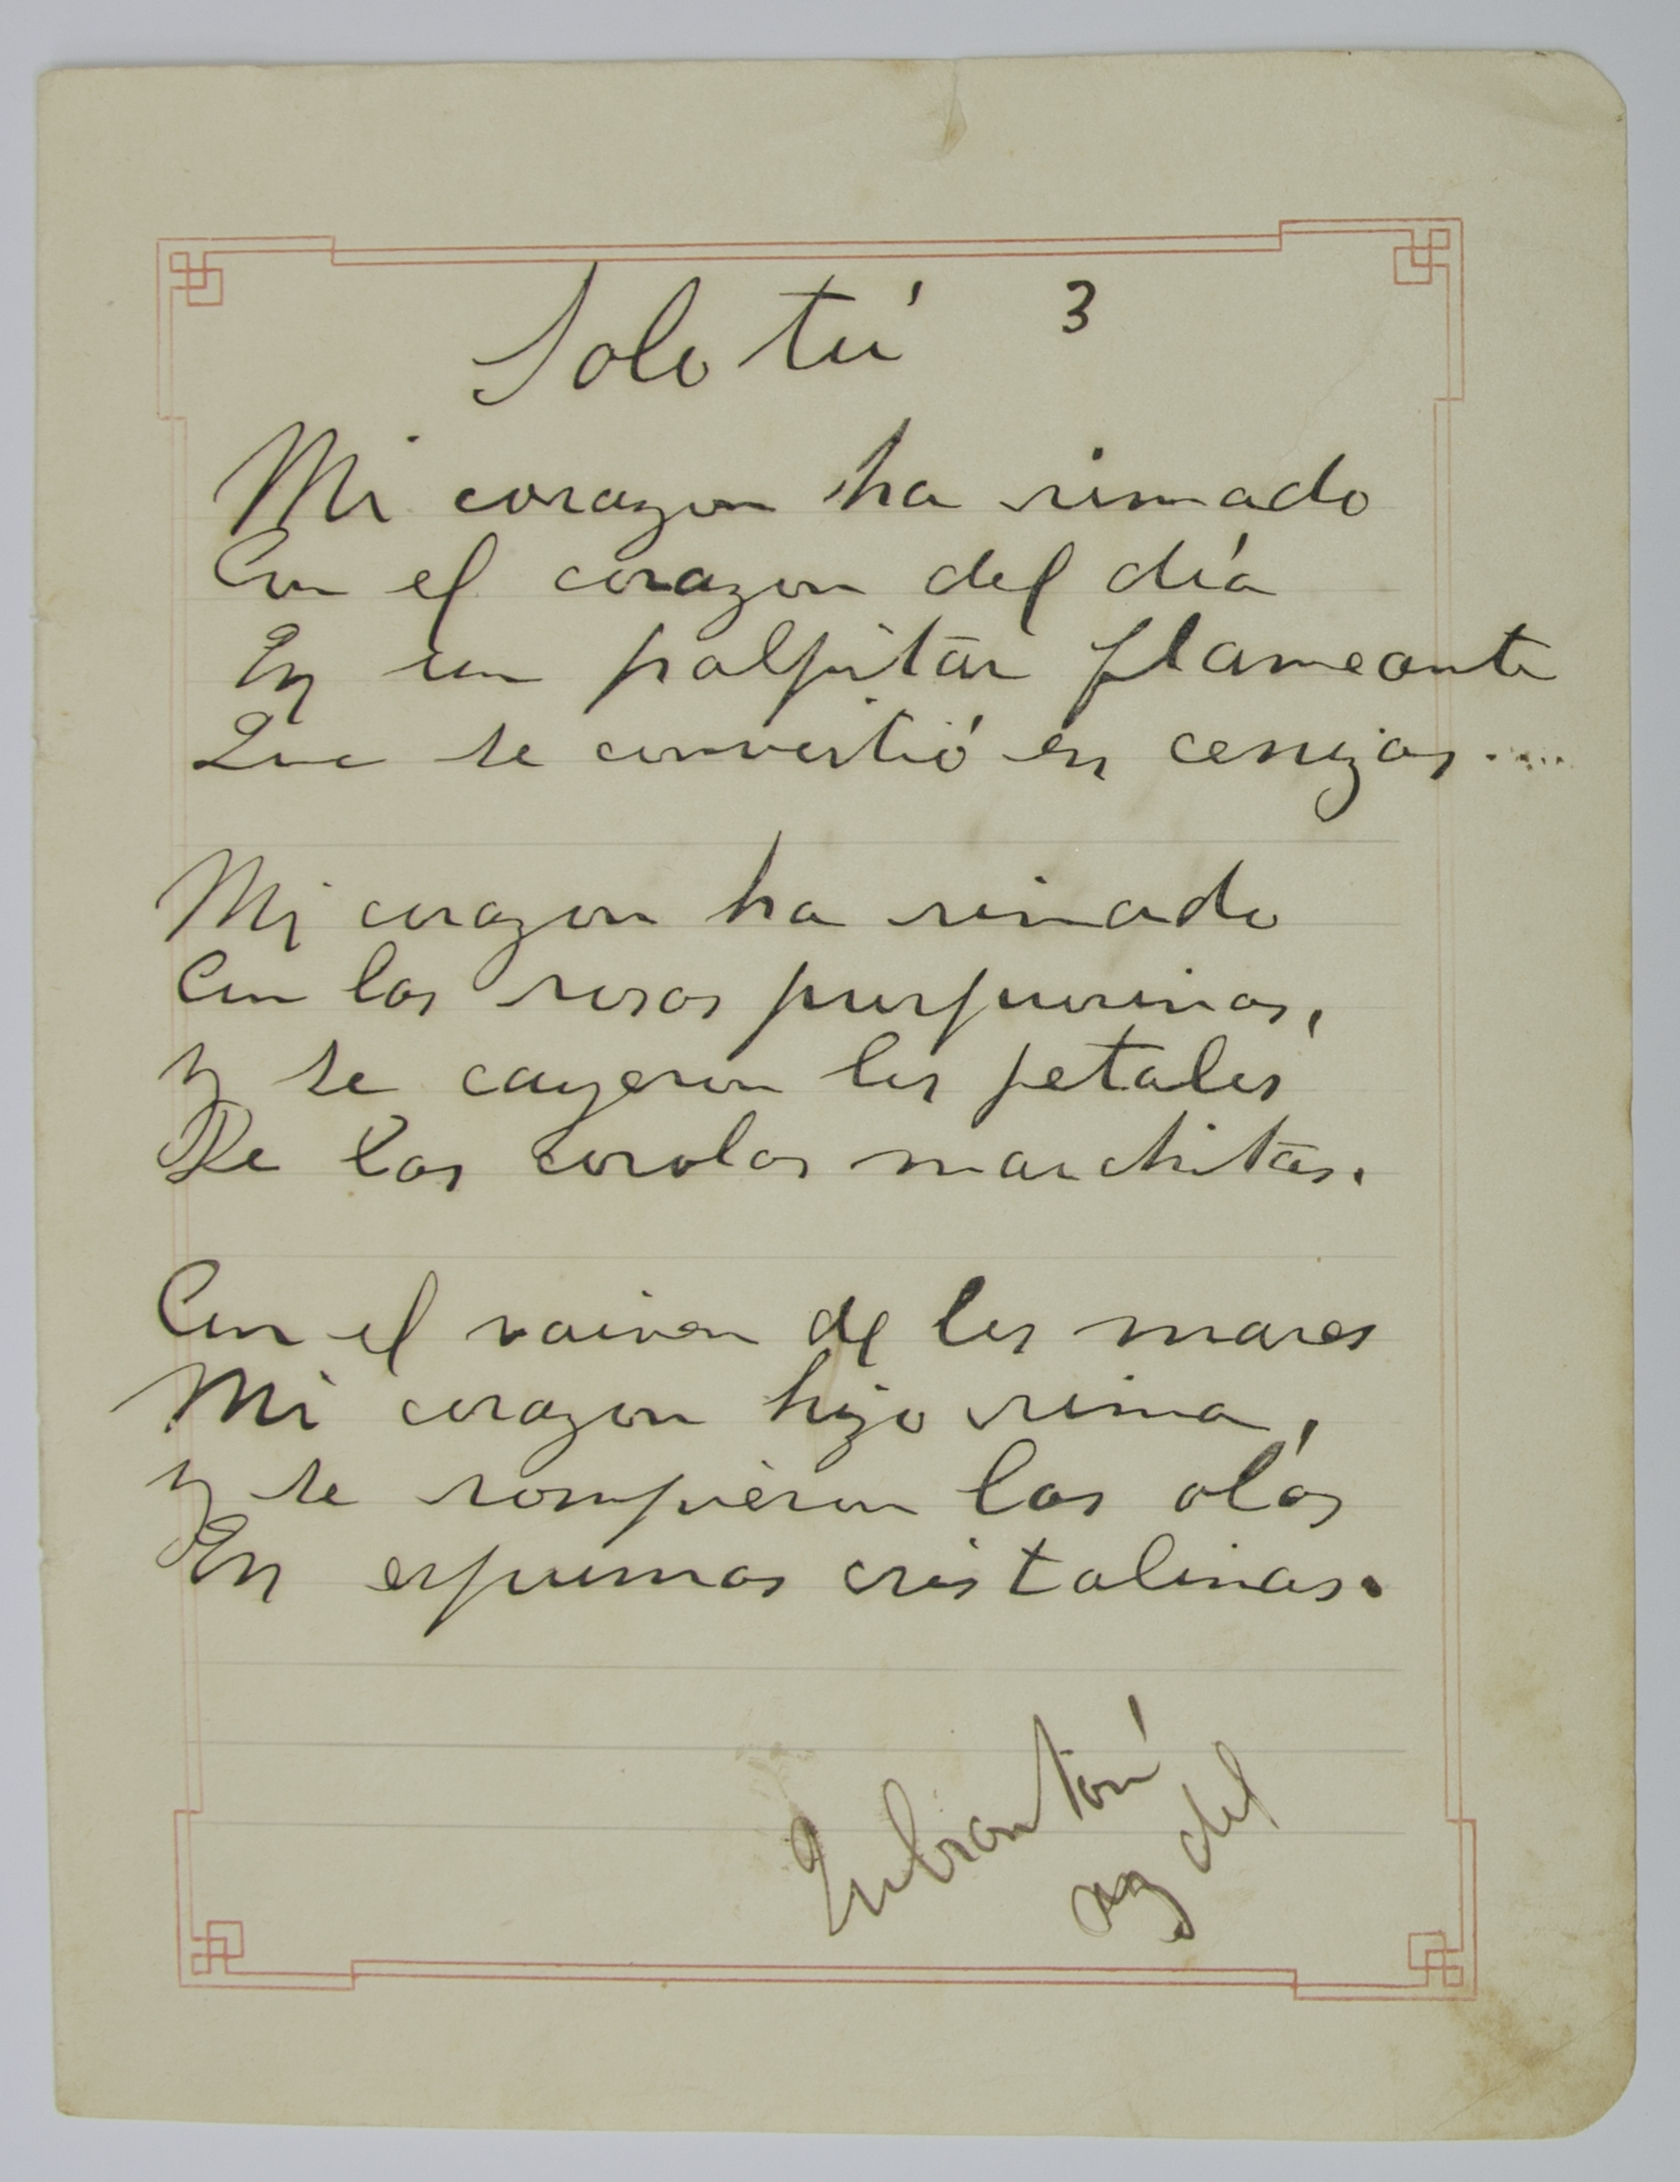 Solo tú 3
Mi corazon ha rimado
Con el corazon del día
En un palpitar flameante
Que se convirtió en cenizas.....
Mi corazon ha rimado
Con las rosas purpurinas,
y se cayeron los petalos
De las corolas marchitas.
Con el vaiven de los mares
Mi corazon hizo rima,
y se rompieron las olas
En espumas cristalinas.